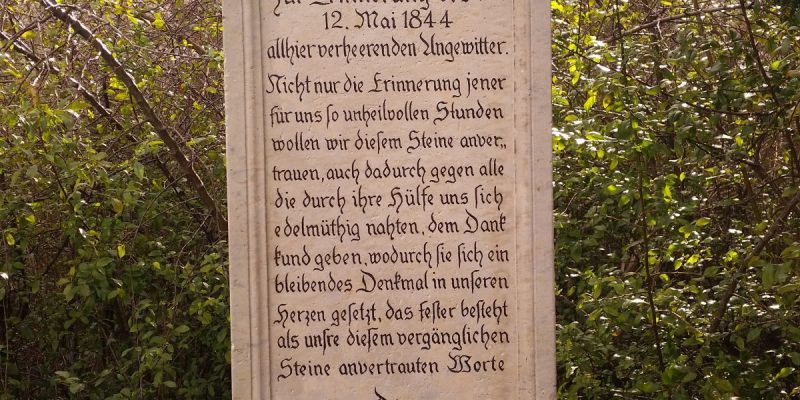 zur Erinnerung
12. Mai 1844
allhier verheerenden Ungewitter.
Nicht nur die Erinnerung jener
für uns so unheilvollen Stunden
wollen wir diesem Steine anver„
trauen, auch dadurch gegen alle
die durch ihre Hülfe uns sich
edelmüthig nahten, dem Dank
kund geben, wodurch sie sich ein
bleibendes Denkmal in unseren
Herzen gesetzt, das fester besteht
als unsre diesem vergänglichen
Steine anvertrauten Worte